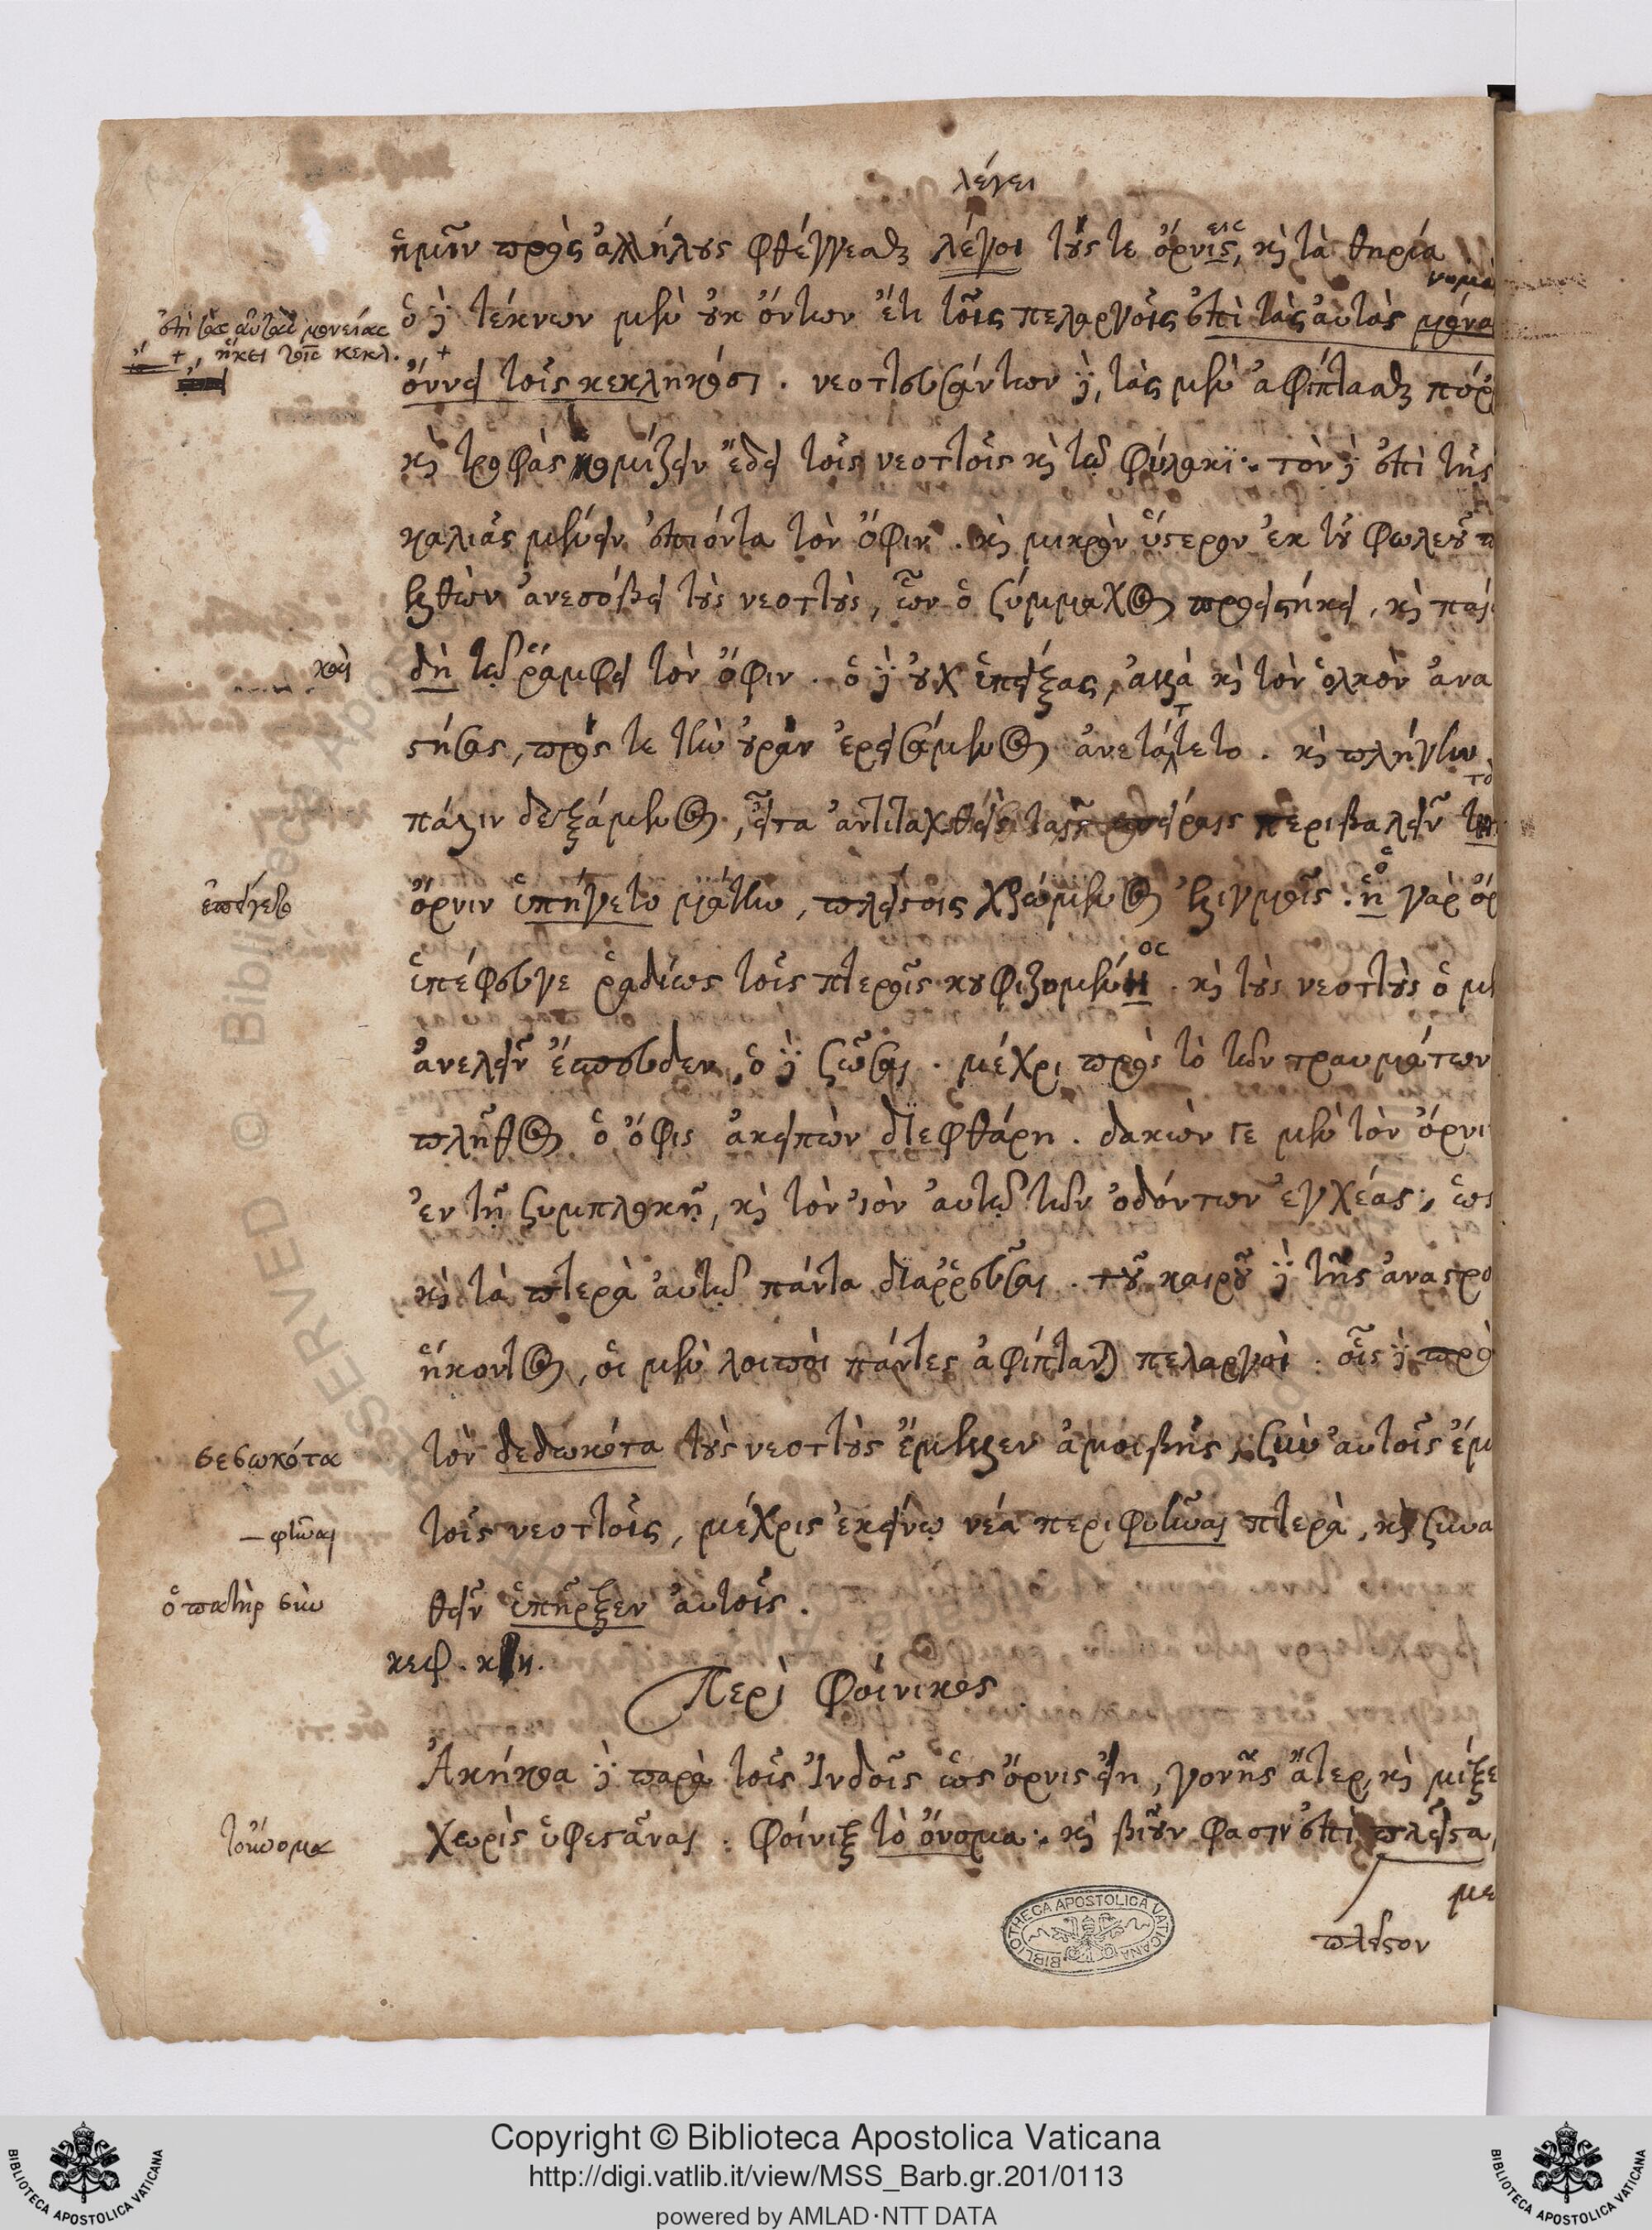 λέγει
ἡμῖν πρὸς ἀλλήλους φθέγγεσθαι λέγοι τούς τε ὄρνις, καὶ τὰ θηρία
εις
νομὰ
ὁ δὲ τέκνων μὲν οὐκ ὄντων ἔτι τοῖς πελαργοῖς ἐπὶ τὰς αὐτὰς μόνα
ἐπὶ τὰς αὐτὰς μονείας
+, ἥκει τοῖς κεκλ.
τοῖς κεκληκόσι. νεοττευσάντων δὲ, τὰς μὲν ἀφίπτασθαι
καὶ τροφὰς κομίζειν ἔδει τοῖς νεοττοῖς καὶ τῷ φύλακι. τὸν δὲ ἐπὶ τῆς
καλιᾶς μένειν ἐπιόντα τὸν ὄφιν. καὶ μικρὸν ὕστερον ἐκ τοῦ φωλεοῦ π
ελθὼν ἀνεσόβει τοὺς νεοττοὺς, ὧν ὁ ζύμμαχος προειστήκει, καὶ παίει
καὶ
δὴ τῷ ῥάμφει τὸν ὄφιν. ὁ δὲ οὐχ ὑπείξας, ἀλλὰ καὶ τὸν ὁλκὸν ἀνα
στήσας, πρός τε τὴν οὐρὰν ἐρεισάμενος ἀνετάτετο. καὶ πληγὴν
τ
τὸ
πάλιν δεξάμενος, εἶτα ἀντιταχθεὶς ταῖς σπείραις περιβαλεῖν τὴν
ἐπείγετο
ὄρνιν ὑπήγετο μάτην, πλείστοις χρώμενος ἑλιγμοῖς. ἡ γὰρ ὄρ
ὁ
ος
ὑπέφευγε ῥᾳδίως τοῖς πτεροῖς κουφιζομένη. καὶ τοὺς νεοττοὺς ὁ μὲ
ἀνελεῖν ἔσπευδεν, ὁ δὲ ζῶσαι. μέχρι πρὸς τὸ τῶν τραυμάτων
πλῆθος ὁ ὄφις ἀπειπὼν διεφθάρη. δακών γε μὲν τὸν ὄρνι
ἐν τῇ ζυμπλοκῇ, καὶ τὸν ἰὸν αὐτῷ τῶν ὀδόντων ἐγχέας, ὡς
καὶ τὰ πτερὰ αὐτῷ πάντα διαῤῥεῦσαι. τοῦ καιροῦ δὲ τῆς ἀναστρο
ἥκοντος, οἱ μὲν λοιποὶ πάντες ἀφίπτανται πελαργοί. οἷς δὲ πρὸ
σεσωκότα
τὸν δεδωκότα τοὺς νεοττοὺς ἔμελλεν ἀμοιβῆς, ζὺν αὐτοῖς ἐμ
– φῦναι
τοῖς νεοττοῖς, μέχρις ἐκείνῳ νέα περιφυῆναι πτερὰ, καὶ ζυνα
ὁ πατὴρ σὺν
θεῖν ὑπῆρξεν αὐτοῖς.
κεφ. κη.
Περὶ Φοίνικος
Ἀκήκοα δὲ παρὰ τοῖς Ἰνδοῖς ὡς ὄρνις εἴη, γονῆς ἄτερ, καὶ μίξε
τοὔνομα
χωρὶς ὑφεστάναι. Φοίνιξ τὸ ὄνομα. καὶ βιοῦν φασιν ἐπὶ πλεῖστα,
με
πλεῖστον
BIBLIOTHECA APOSTOLICA VATICANA
Copyright © Biblioteca Apostolica Vaticana
http://digi.vatlib.it/view/MSS_Barb.gr.201/0113
powered by AMLAD·NTT DATA
BIBLIOTECA APOSTOLICA VATICANA
BIBLIOTECA APOSTOLICA VATICANA